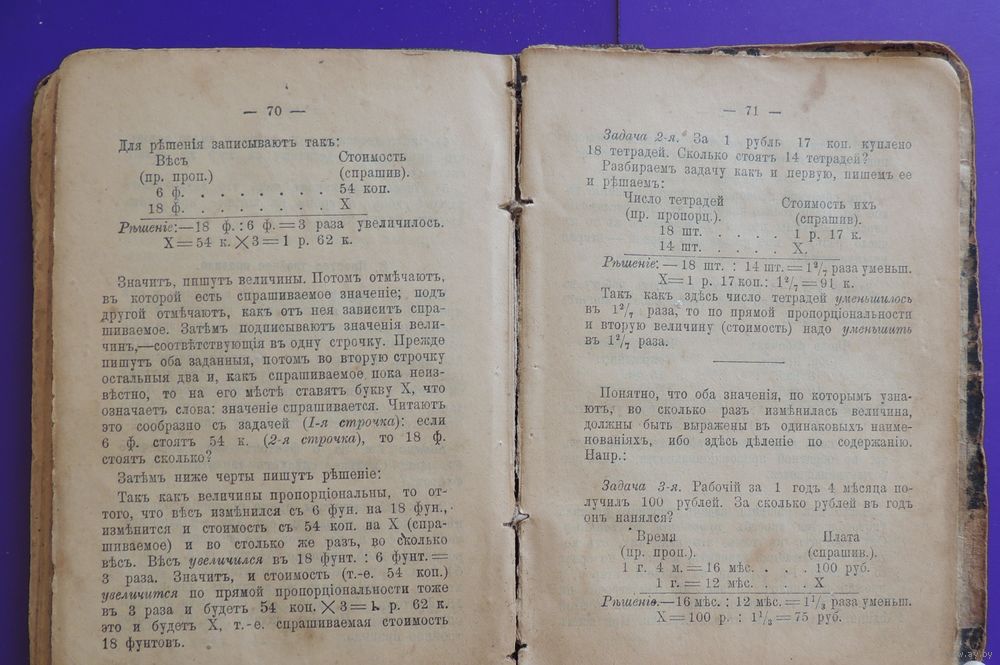 — 70 —
Для рѣшенія записываютъ такъ:
Вѣсъ Стоимость
(пр. проп.) (спрашив).
6 ф. . . . . . . . . 54 коп.
18 ф. . . . . . . . . X
Рѣшеніе:—18 ф. : 6 ф. = 3 раза увеличилось.
X = 54 к. ╳ 3 = 1 р. 62 к.
Значитъ, пишутъ величины. Потомъ отмѣчаютъ,
въ которой есть спрашиваемое значеніе; подъ
другой отмѣчаютъ, какъ отъ нея зависитъ спра-
шиваемое. Затѣмъ подписываютъ значенія вели-
чинъ,—соотвѣтствующія въ одну строчку. Прежде
пишутъ оба заданныя, потомъ во вторую строчку
остальныя два и, какъ спрашиваемое пока неиз-
вѣстно, то на его мѣстѣ ставятъ букву X, что
означаетъ слова: значеніе спрашивается. Читаютъ
это сообразно съ задачей (1-я строчка): если
6 ф. стоятъ 54 к. (2-я строчка), то 18 ф.
стоятъ сколько?
Затѣмъ ниже черты пишутъ рѣшеніе:
Такъ какъ величины пропорціональны, то от-
того, что вѣсъ измѣнился съ 6 фун. на 18 фун.,
измѣнится и стоимость съ 54 коп. на X (спра-
шиваемое) и во столько же разъ, во сколько
вѣсъ. Вѣсъ увеличился въ 18 фунт. : 6 фунт. =
3 раза. Значитъ, и стоимость (т.-е. 54 коп.)
увеличится по прямой пропорціональности тоже
въ 3 раза и будетъ 54 коп. ╳ 3 = 1 р. 62 к.
это и будетъ X, т.-е. спрашиваемая стоимость
18 фунтовъ.
— 71 —
Задача 2-я. За 1 рубль 17 коп. куплено
18 тетрадей. Сколько стоятъ 14 тетрадей?
Разбираемъ задачу какъ и первую, пишемъ ее
и рѣшаемъ:
Число тетрадей Стоимость ихъ
(пр. пропорц.). (спрашив).
18 шт. . . . . . 1 р. 17 к.
14 шт. . . . . . X.
Рѣшеніе: — 18 шт. : 14 шт. = 1²/₇ раза уменьш.
X = 1 р. 17 коп. : 1²/₇ = 91 к.
Такъ какъ здѣсь число тетрадей уменьшилось
въ 1²/₇ раза, то по прямой пропорціональности
и вторую величину (стоимость) надо уменьшить
въ 1²/₇ раза.
Понятно, что оба значенія, по которымъ узна-
ютъ, во сколько разъ измѣнилась величина,
должны быть выражены въ одинаковыхъ наиме-
нованіяхъ, ибо здѣсь дѣленіе по содержанію.
Напр.:
Задача 3-я. Рабочій за 1 годъ 4 мѣсяца по-
лучилъ 100 рублей. За сколько рублей въ годъ
онъ нанялся?
Время Плата
(пр. проп.). (спрашив.).
1 г. 4 м. = 16 мѣс. . . . 100 руб.
1 г. = 12 мѣс. . . . X
Рѣшеніе.—16 мѣс. : 12 мѣс. = 1¹/₃ раза уменьш.
X = 100 р. : 1¹/₃ = 75 руб.